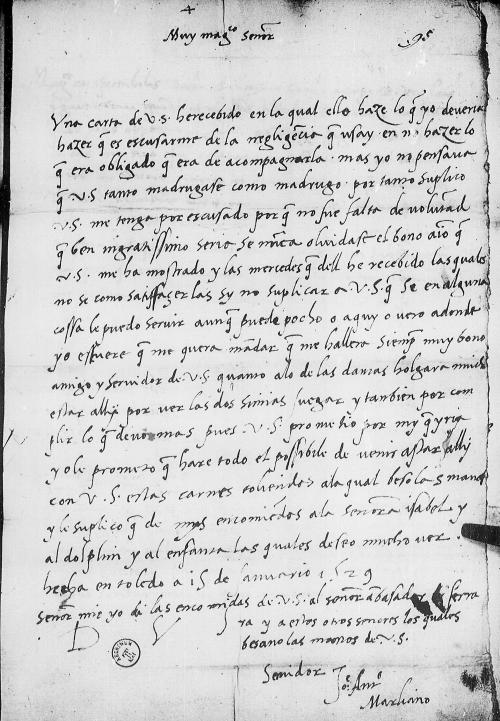 Muy mag.co Señor
95
Una carta de V.S. he recebido en la qual ella haze lo q̃ yo deveria
hazer q̃ es escusarme de la negligẽcia q̃ usay en no hazer lo
q̃ era obligado q̃ era de acompagnarla. mas yo no pensava
q̃ V.S. tanto madrugase como madrugo. por tanto suplico
V.S. me tenga por escusado porq̃ no fue falta de volũtad
q̃ ben ingratissimo seria se nũca olvidase el bono aĩo q̃
V.S. me ha mostrado y las mercedes q̃ dell he recebido las quales
no se como satisfazer las sy no suplicar a V.S. q̃ se en alguna
cossa le puedo servir aunq̃ puedo pocho o aquy o vero adonde
yo estuere q̃ me quera mãdar q̃ me hallera siemp̃ muy bono
amigo y servidor de V.S. quanto alo de las danzas holgara mucho
estar ally por ver las dos simias jugar y tanbien por com
plir lo q̃ devo mas pues V.S. prometio por my q̃ yria
yo le prometo q̃ hare todo el possibile de venir astar ally
con V.S. estas carnes tolendas ala qual beso las manos
y le suplico q̃ de mys encomiẽdas ala señora isabel y
al dolphin y al enfanta las quales deseo mucho ver.
hecha en toledo a 15 de Ianuario 1529
señor mie yo di las encomiẽdas de V.S. al señor ãbasador de ferra
ra y a estos otros señores los quales
besano las manos de V.S.
Servidor Jo. Ant.o
Marliano